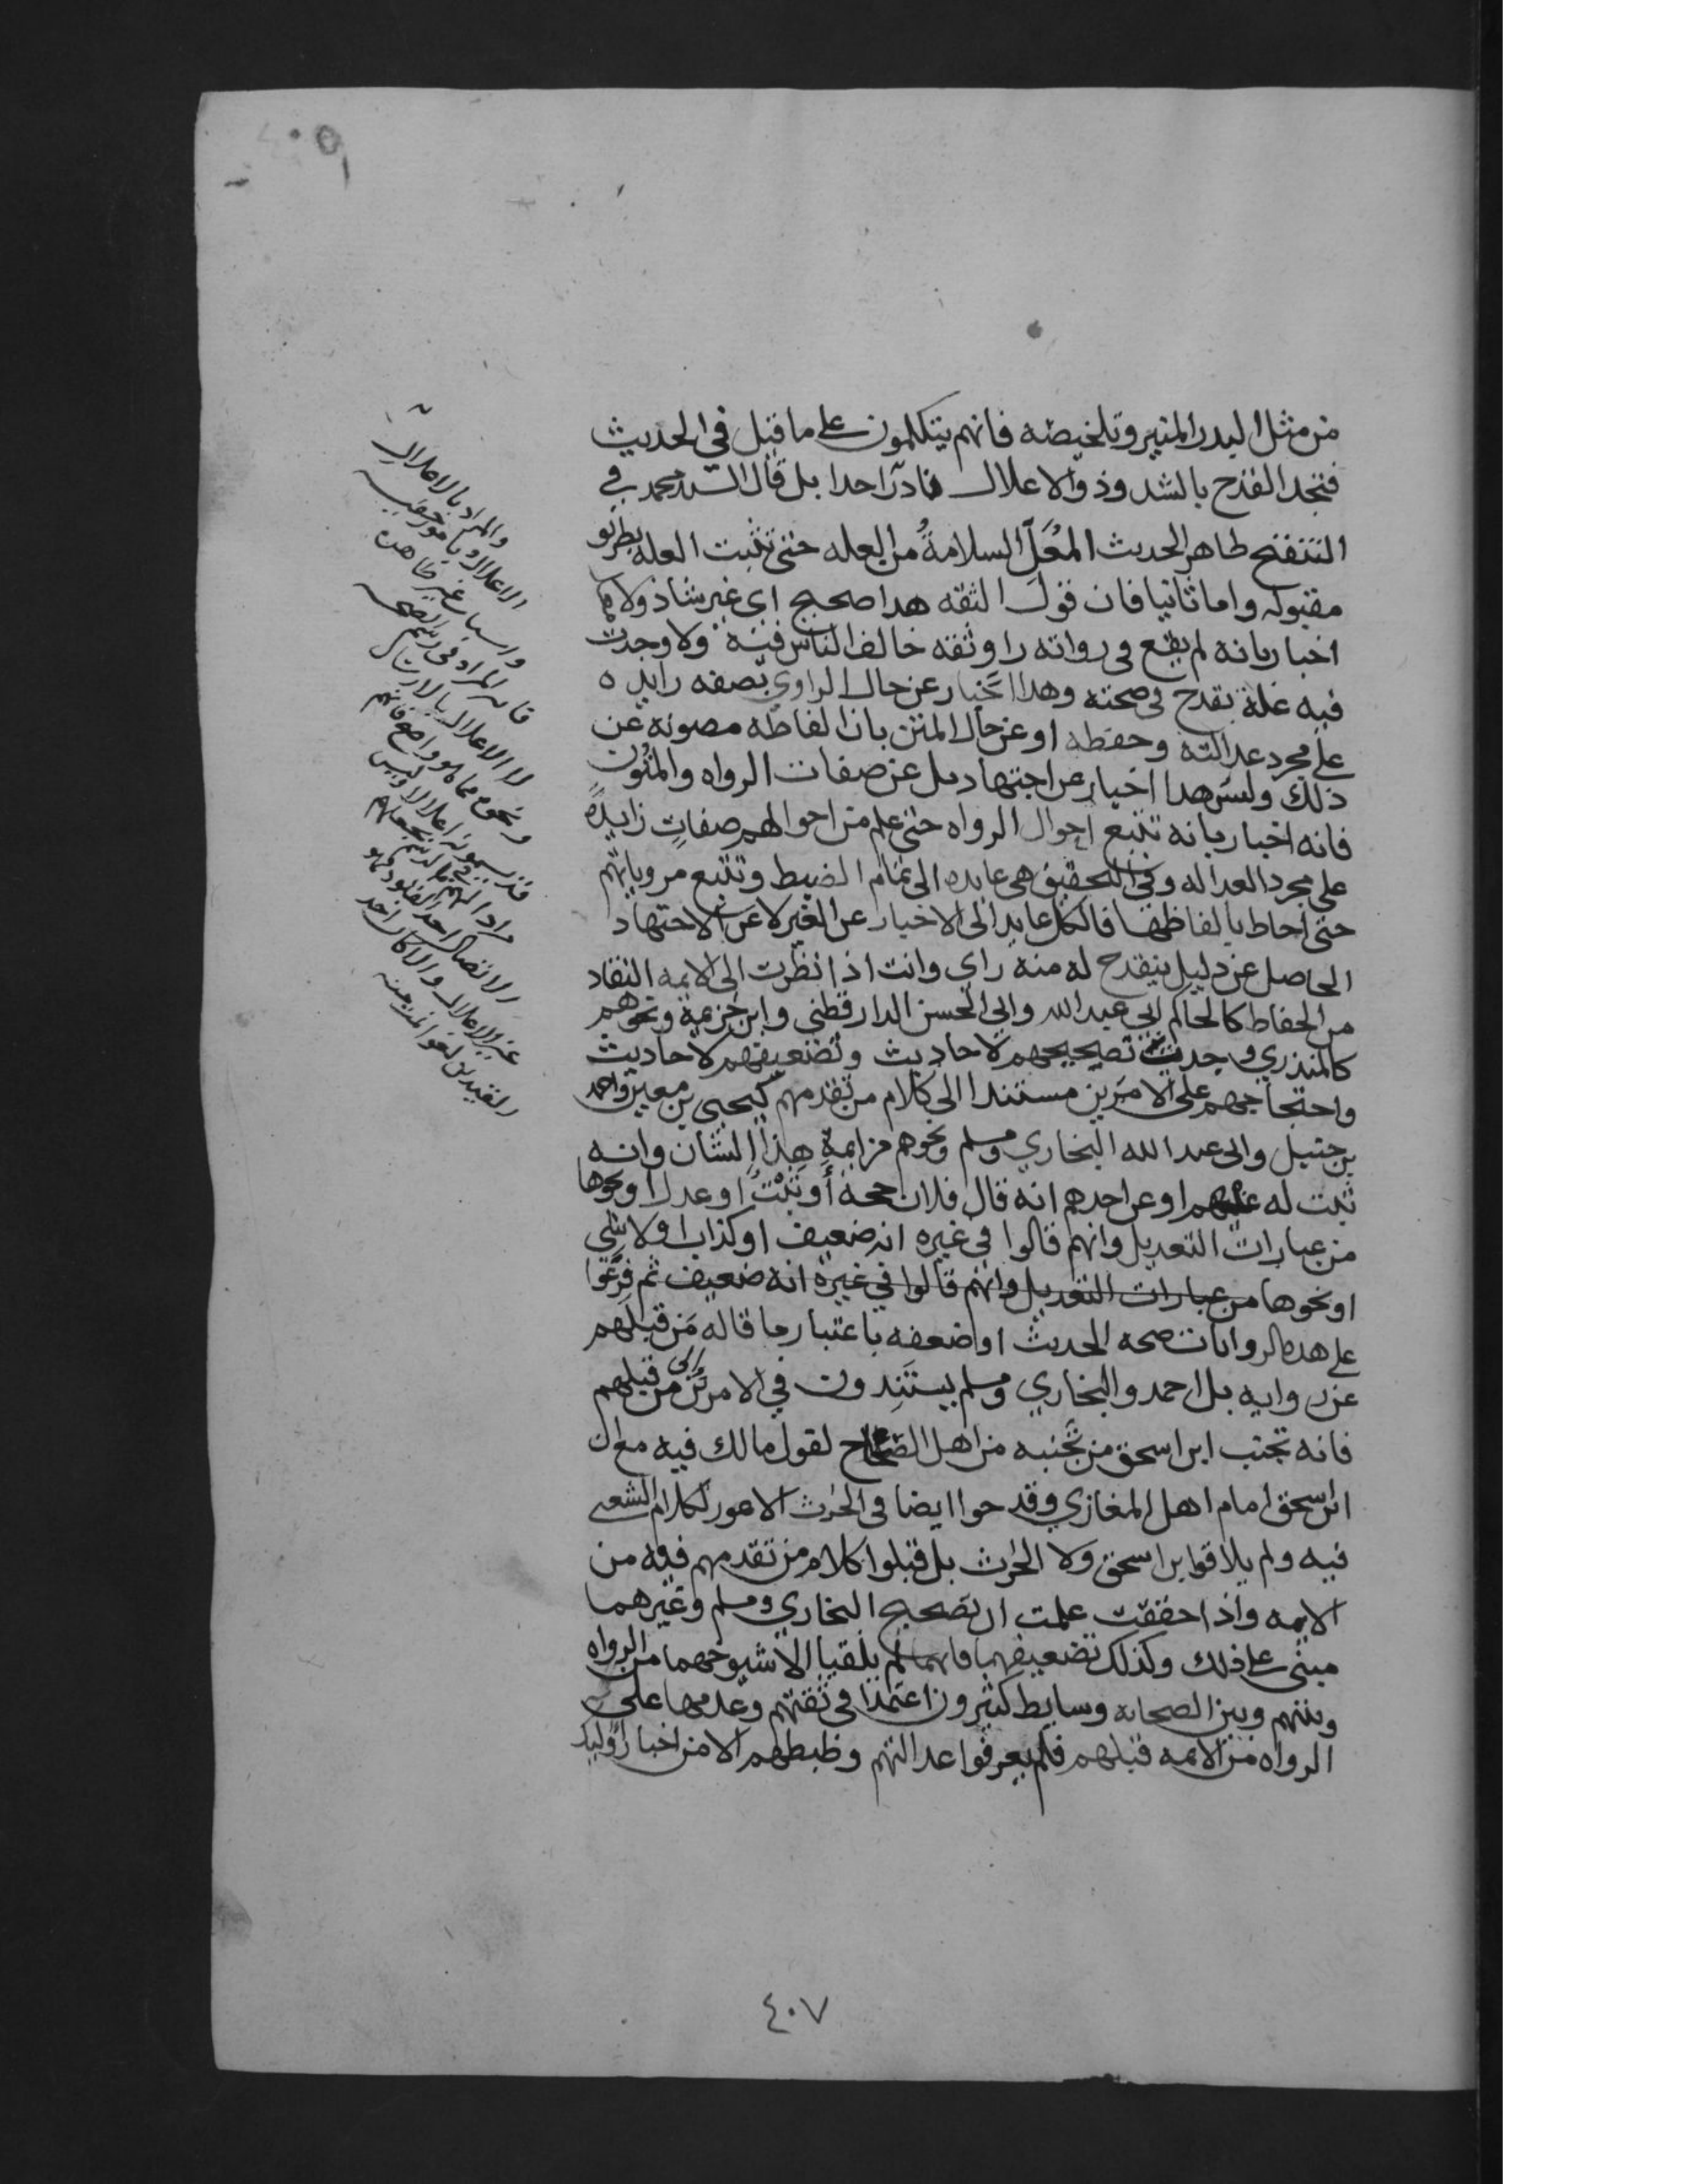 من مثل البدر المنير وتلخيصه فانهم يتكلمون على ما قيل في الحديث
فتجد القدح بالشذوذ والاعلال نادرا جدا بل قال السيد محمد في
التنقيح ظاهر الحديث المعَلّ السلامةُ من العله حتى تثبت العله بطريق
مقبوله واما ثانيا فان قول الثقه هذا صحيح اي غير شاذ ولا معل
اخبار بانه لم يقع في رواته راو ثقه خالف الناس فيه ولا وجدت
فيه علة تقدح في صحته وهذا اخبار عن حال الراوي بصفه زايده
على مجرد عدالته وحفظه او عن حال المتن بان الفاظه مصونه عن
ذلك وليس هذا اخبار عن اجتهاد بل عن صفات الرواه والمتُون
فانه اخبار بانه تتبع احوال الرواه حتى علم من احوالهم صفاتٍ زايدةً
على مجرد العداله وفي التحقيق هي عايده الى تمام الضبط وتتبع مروياتهم
حتى احاط بالفاظها فالكل عايد الى الاخبار عن الغير لا عن الاجتهاد
الحاصل عن دليل ينقدح له منه راي وانت اذا نظرت الى الايمه النقاد
من الحفاظ كالحاكم ابي عبد الله وابي الحسن الدارقطني وابن خزيمة ونحوهم
كالمنذري وجدت تصحيحهم لاحاديث وتضعيفهم لاحاديث
واحتجاجهم على الامرين مستندا الى كلام من تقدمهم كيحيى بن معين واحمد
بن حنبل وابي عبد الله البخاري ومسلم ونحوهم من ايمة هذا الشان وانه
ثبت له عنهم او عن احدهم انه قال فلان حجه أو ثبْتُ او عدل او نحوها
من عبارات التعديل وانهم قالوا في غيره انه ضعيف او كذاب او لا شي
او نحوها من عبارات التعديل وانهم قالوا في غيره انه ضعيف ثم فرّعوا
على هذه الروايات صحه الحديث او ضعفه باعتبار ما قاله مَن قبلهم
عن روايه بل احمد والبخاري ومسلم يستَندون في الامرين الى من قبلهم
فانه تجنب ابن اسحق من تجَنبه من اهل الصحاح لقول مالك فيه مع ان
ابن اسحق امام اهل المغازي وقدحوا ايضا في الحرث الاعور لكلام الشعبي
فيه ولم يلاقوا ابن اسحق ولا الحرث بل قبلوا كلام من تقدمهم فيه من
الايمه واذا حققت علمت ان تصحيح البخاري ومسلم وغيرهما
مبني على ذلك وكذلك تضعيفهما فانهما لم يلقيا الا شيوخهما من الرواه
وبينهم وبين الصحابه وسايط كثيرون اعتمدا في ثقتهم وعدمها على
الرواه من الايمه قبلهم فلم يعرفوا عدالتهم وظبطهم الا من اخبار اوليك
والمراد بالاعلال
الاعلال بامور خفيه
واسباب غير ظاهره
فانه المراد في رسم الصحيح
لا الاعلال بالارسال
ونحوه مما هو واضح فانهم
قد يسمونه اعلالا وليس
مرادا لهم في الرسم
الاتصال احد القيود فهو
غير الاعلال والا كان احد
القيدين لغوا
٤٠٧